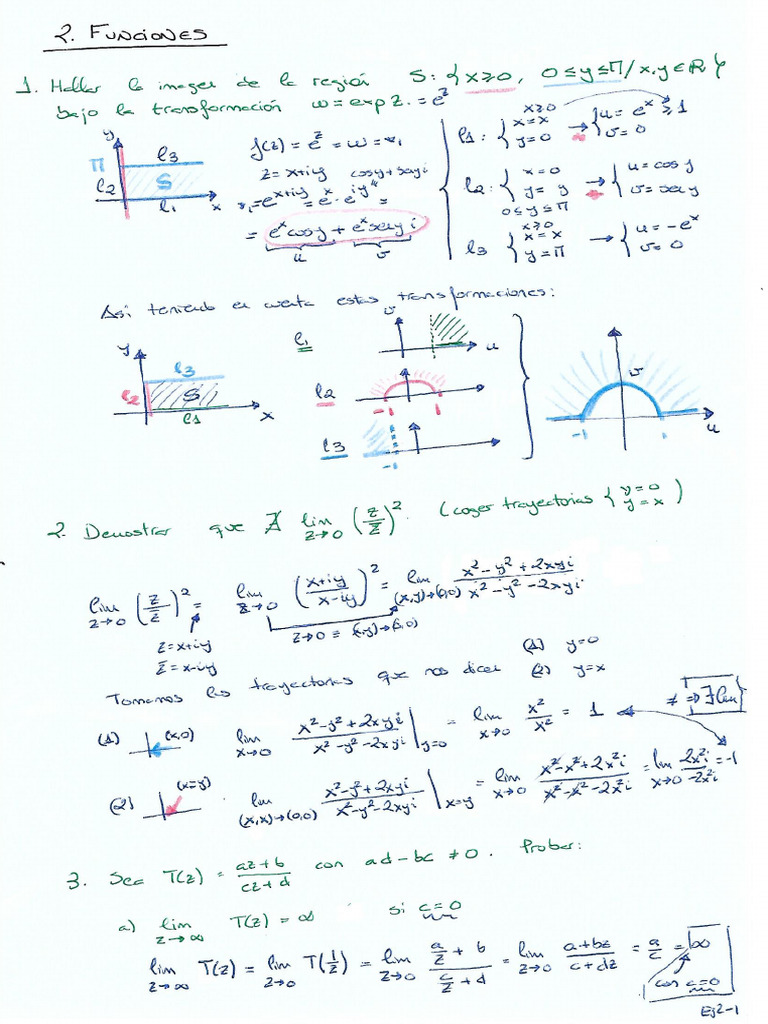 2. FUNCIONES
1. Hallar la imagen de la región S: {x≥0, 0≤y≤π / x,y∈R}
bajo la transformación w = exp z. = e^z
y
π l3
l2 S
l1 x
f(z) = e^z = w =
z = x+iy cosy + seny i
= e^{x+iy} = e^x · e^{iy} =
= e^x cosy + e^x seny i
u v
l1: { x≥0 x=x y=0 → { u = e^x ≥ 1 v = 0
l2: { x=0 y=y 0≤y≤π → { u = cos y v = sen y
l3 { x≥0 x=x y=π → { u = -e^x v = 0
Así teniendo en cuenta estas transformaciones:
y l3
l2 S
l1 x
l1 v u
l2 -1 1
l3 -1
v
-1 1 u
2. Demostrar que ∄ lim z→0 (z/z̄)^2. (coger trayectorias { y=0 y=x )
lim z→0 (z/z̄)^2 = lim z→0 ((x+iy)/(x-iy))^2 = lim (x,y)→(0,0) (x²-y²+2xyi)/(x²-y²-2xyi)
z→0 ≡ (x,y)→(0,0)
z = x+iy
z̄ = x-iy
Tomamos las trayectorias que nos dicen (1) y=0
(2) y=x
(1) (x,0) lim x→0 (x²-y²+2xyi)/(x²-y²-2xyi) |y=0 = lim x→0 x²/x² = 1
≠ ⇒ ∄ lim
(2) (x=y) lim (x,x)→(0,0) (x²-y²+2xyi)/(x²-y²-2xyi) |x=y = lim x→0 (x²-x²+2x²i)/(x²-x²-2x²i) = lim x→0 2x²i/-2x²i = -1
3. Sea T(z) = (az+b)/(cz+d) con ad-bc ≠ 0. Probar:
a) lim z→∞ T(z) = ∞ si c=0
lim z→∞ T(z) = lim z→0 T(1/z) = lim z→0 (a/z + b)/(c/z + d) = lim z→0 (a+bz)/(c+dz) = a/c = ∞
con c=0
Ej2-1